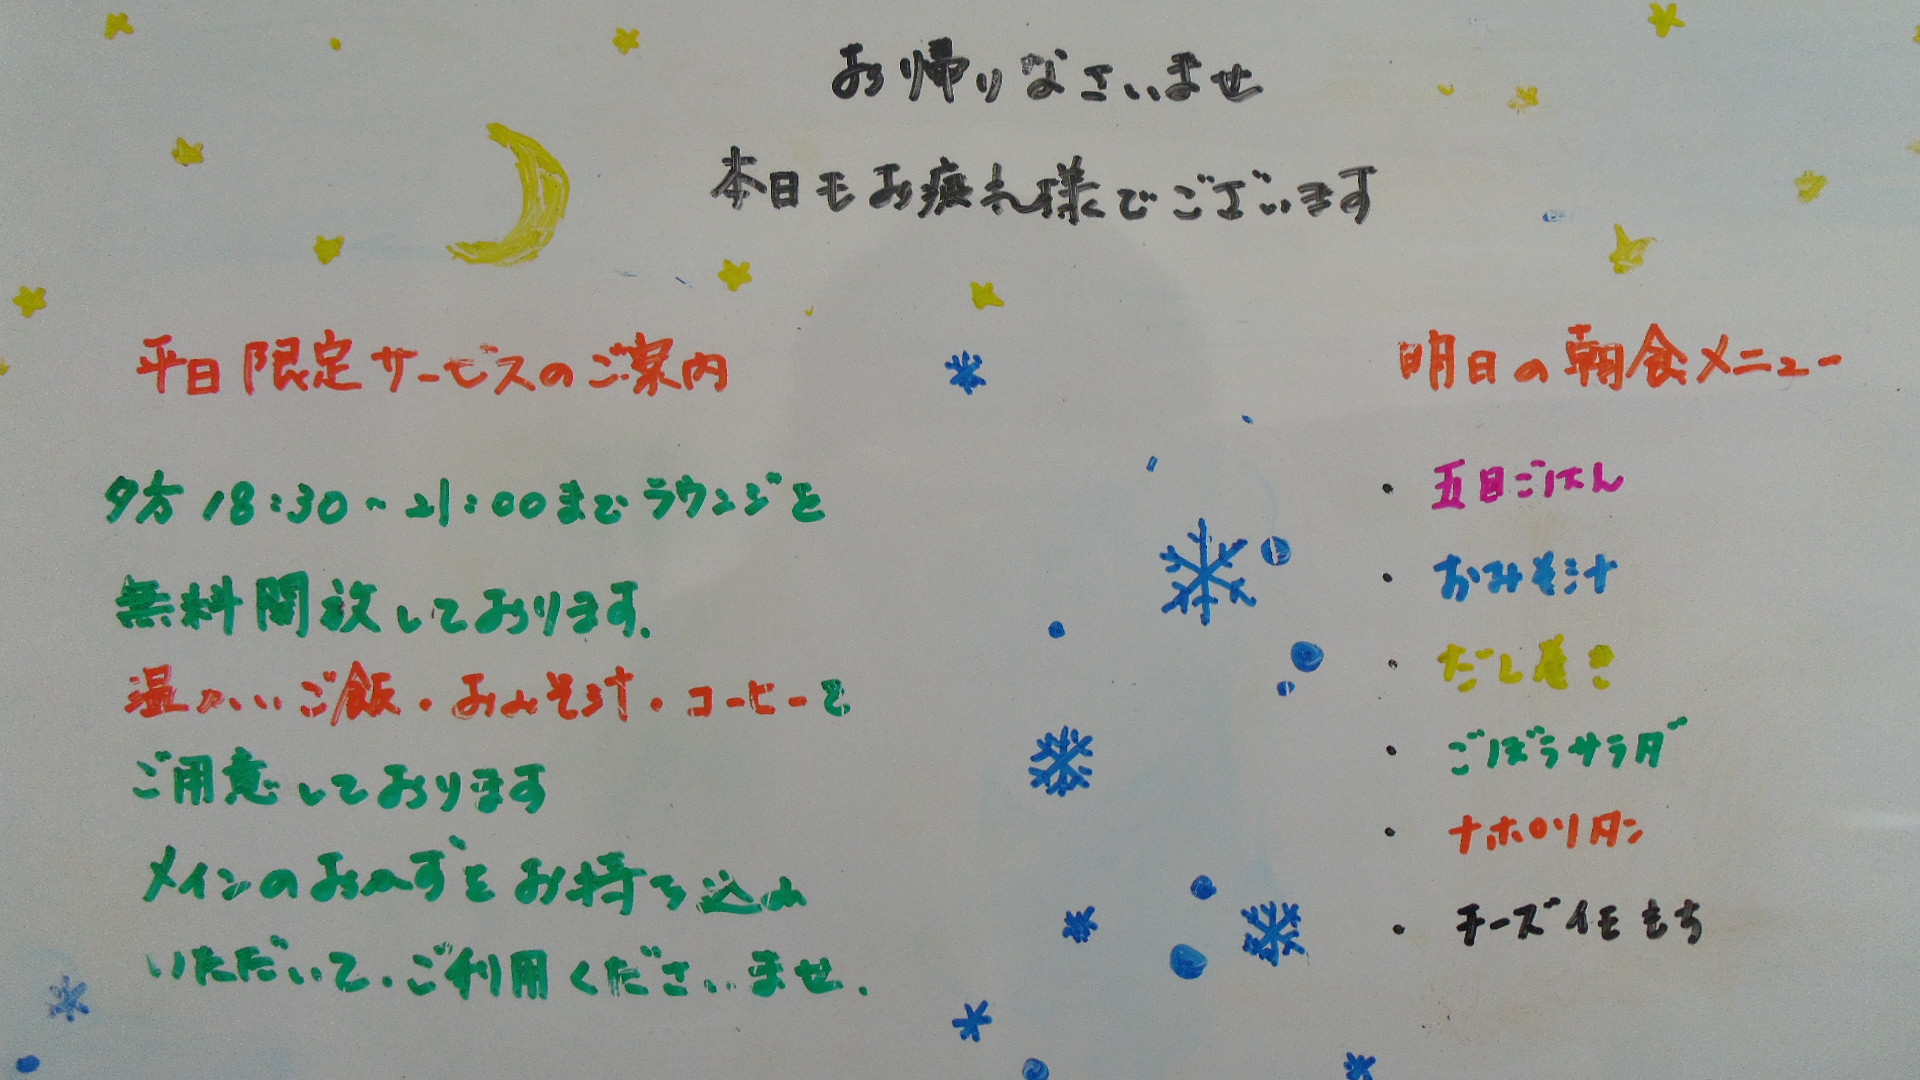 お帰りなさいませ
本日もお疲れ様でございます
平日限定サービスのご案内
夕方18:30~21:00までラウンジを
無料開放しております.
温かいご飯・おみそ汁・コーヒーを
ご用意しております
メインのおかずをお持ち込み
いただいて.ご利用くださいませ.
明日の朝食メニュー
・五目ごはん
・おみそ汁
・だし巻き
・ごぼうサラダ
・ナポリタン
・チーズイモもち